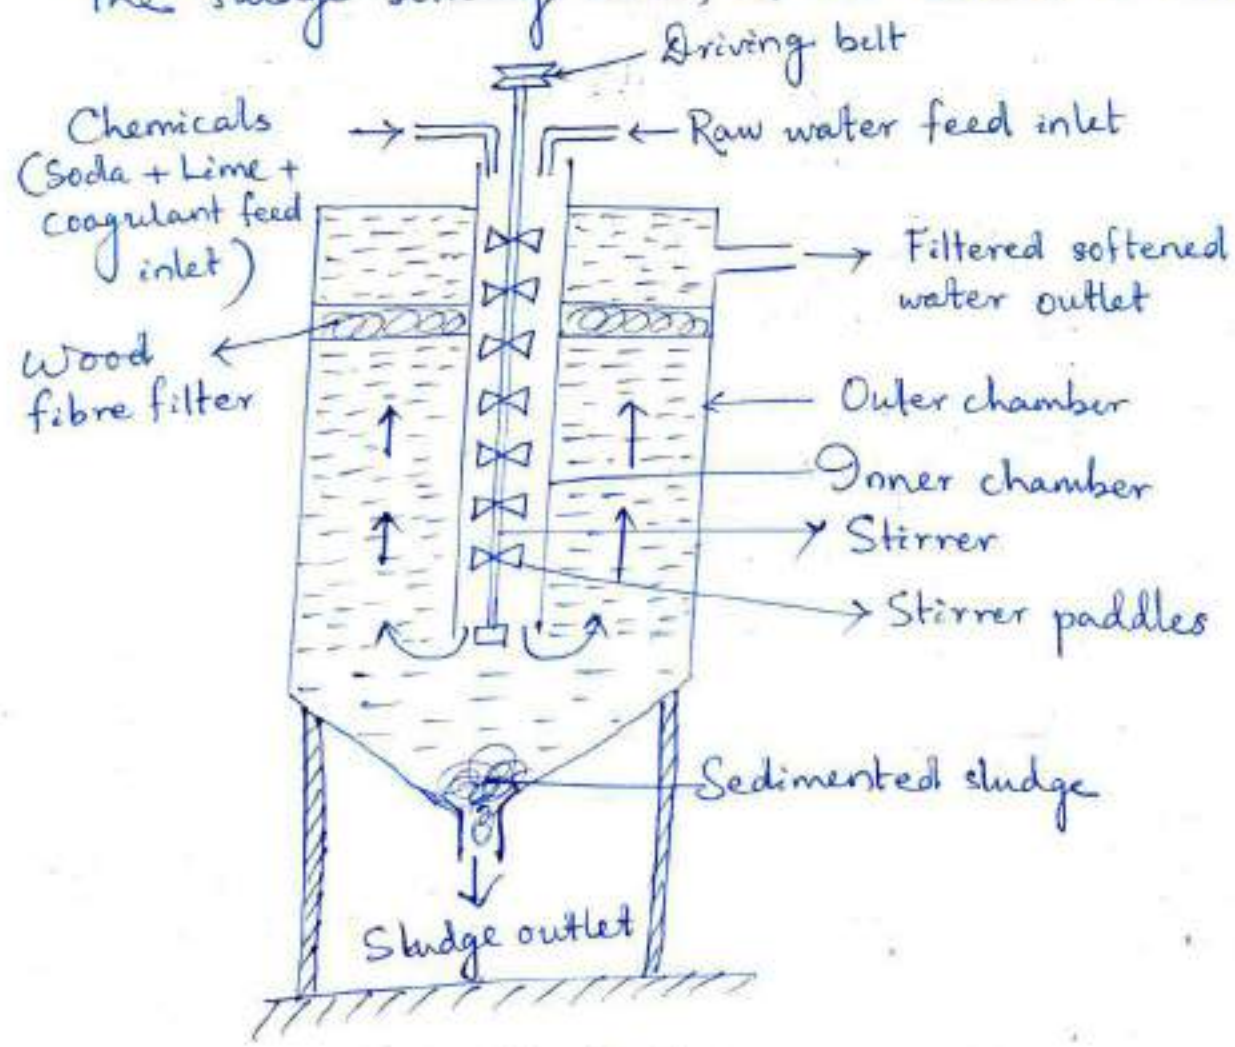 The sludge
Driving belt
Chemicals
(Soda + Lime +
coagulant feed
inlet)
Raw water feed inlet
Filtered softened
water outlet
Wood
fibre filter
Outer chamber
Inner chamber
Stirrer
Stirrer paddles
Sedimented sludge
Sludge outlet